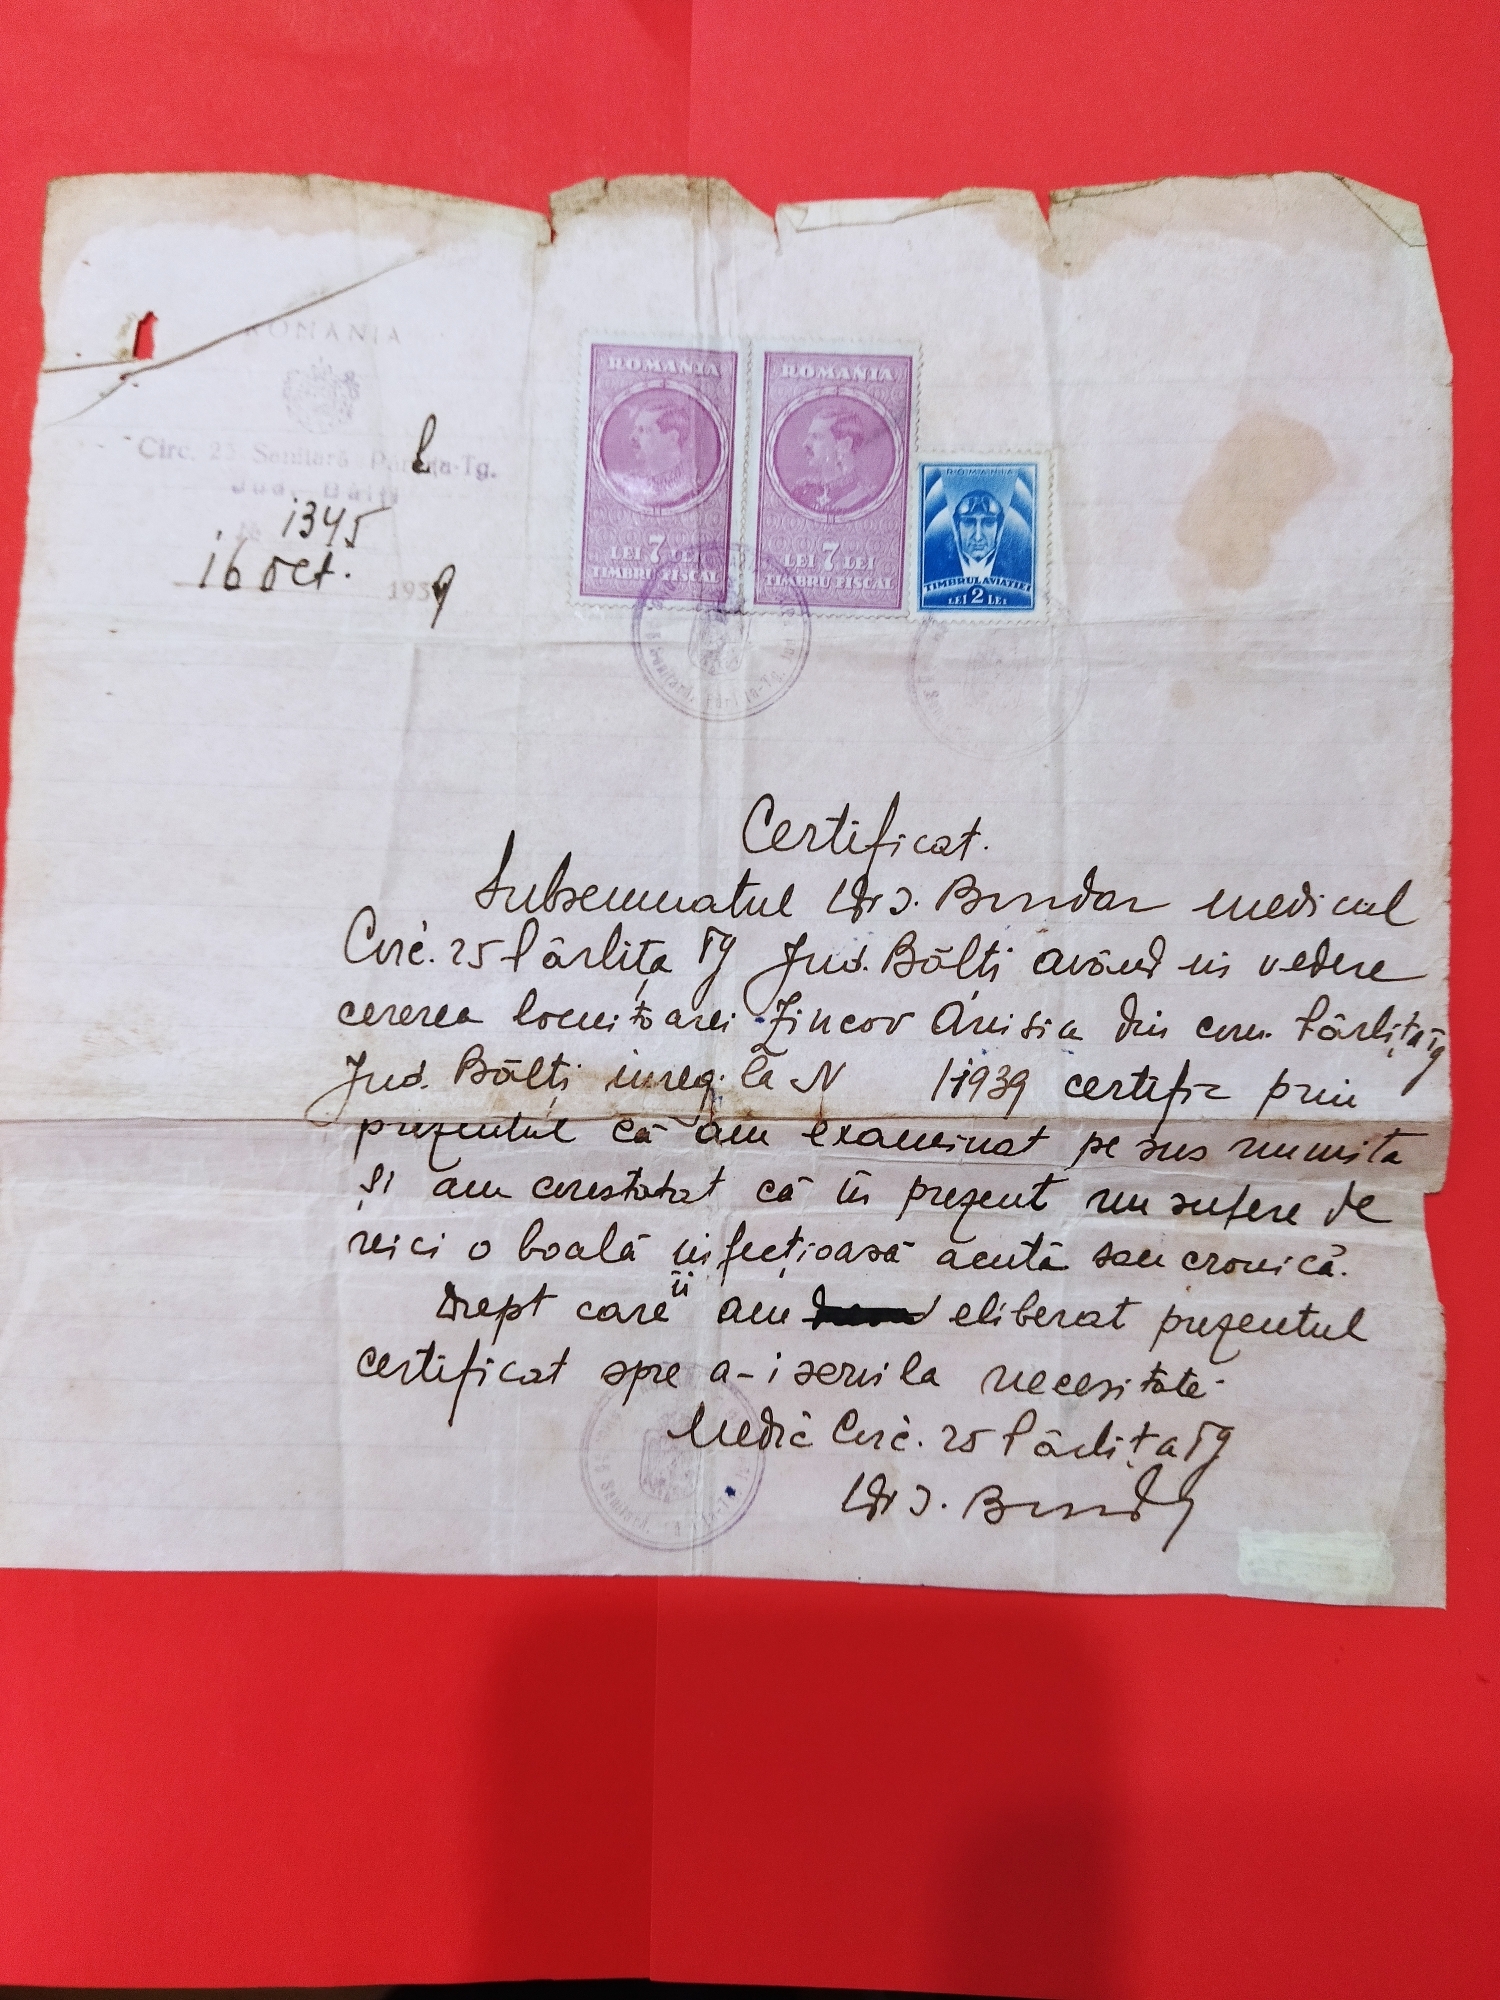 ROMANIA
Circ. 25 Sanitară Pârlița-Tg.
Jud. Bălți
1345
16 Oct. 1939
ROMANIA
LEI 7 LEI
TIMBRU FISCAL
ROMANIA
LEI 7 LEI
TIMBRU FISCAL
ROMANIA
TIMBRUL AVIAȚIEI
LEI 2 LEI
Certificat.
Subsemnatul Dr I. Bundar medicul
Circ. 25 Pârlița Tg Jud. Bălți având în vedere
cererea locuitoarei Zincov Anisia din com. Pârlița Tg
Jud. Bălți inreg. la N /1939 certific prin
prezentul că am examinat pe sus numita
și am constatat că în prezent nu sufere de
nici o boală infecțioasă acută sau cronică.
Drept care îi am eliberat prezentul
certificat spre a-i servi la necesitate.
Medic Circ. 25 Pârlița Tg
Dr I.